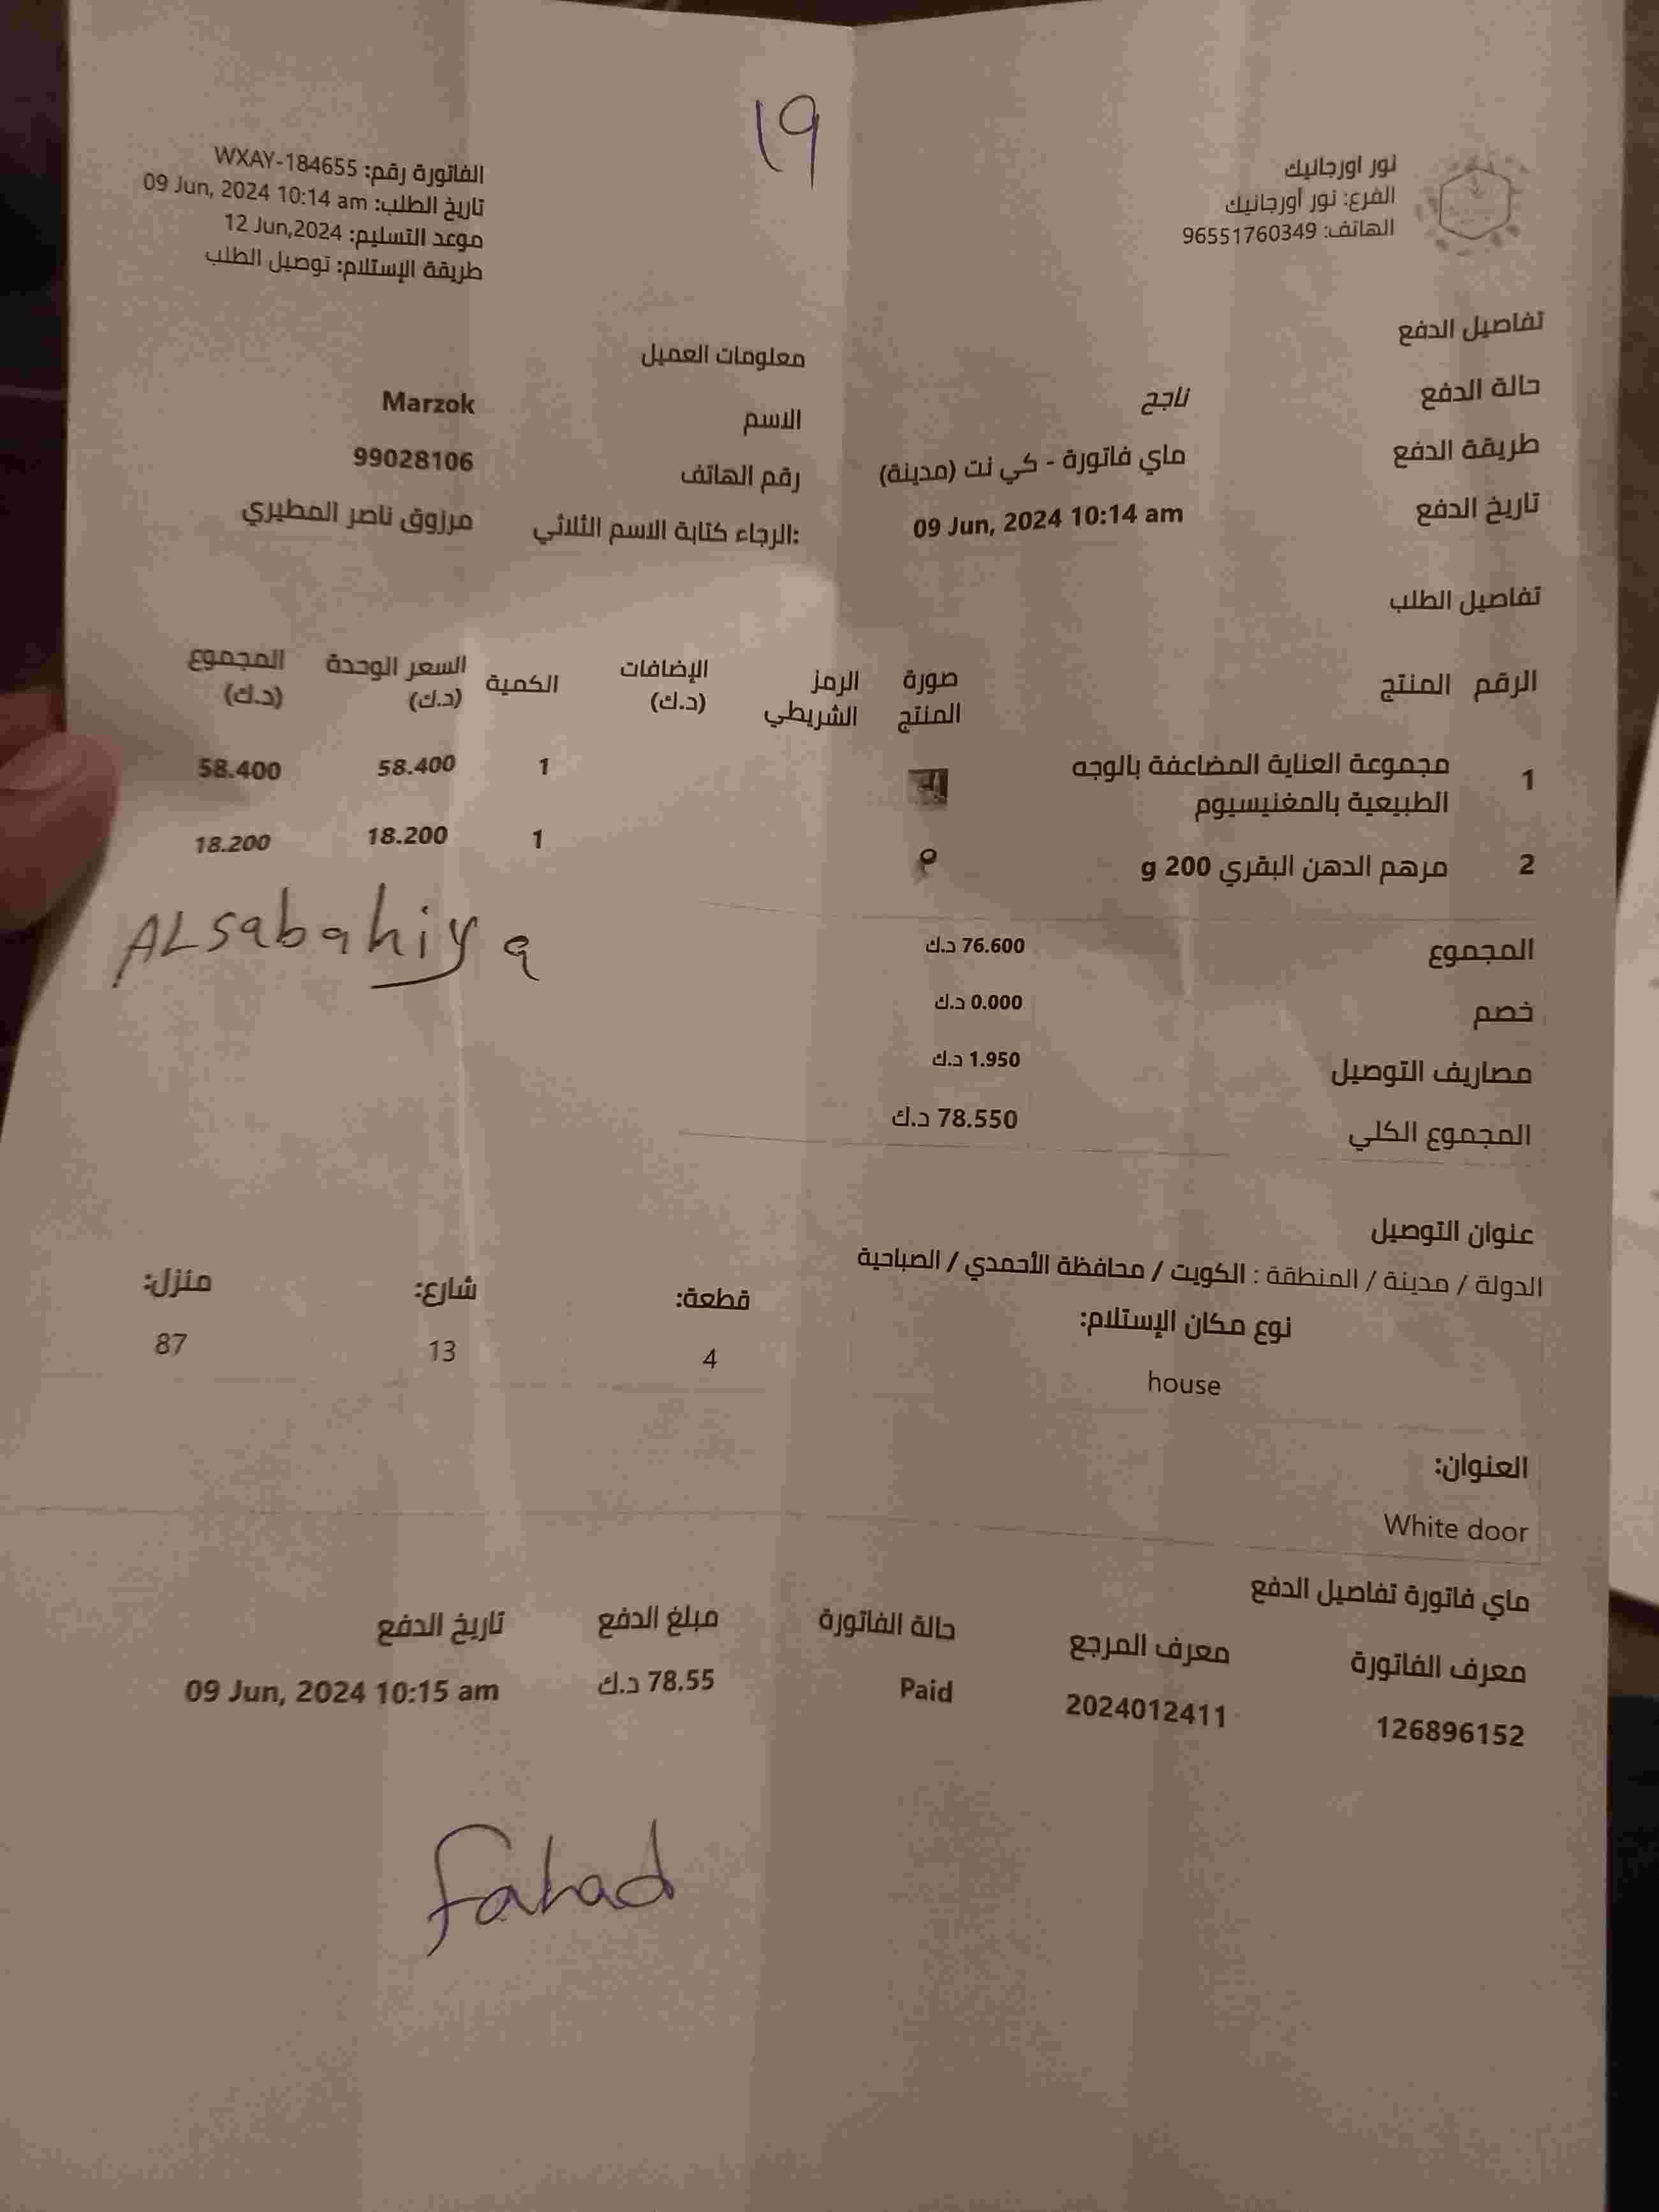 19
نور اورجانيك
الفرع: نور أورجانيك
الهاتف: 96551760349
الفاتورة رقم: WXAY-184655
تاريخ الطلب: 09 Jun, 2024 10:14 am
موعد التسليم: 12 Jun,2024
طريقة الإستلام: توصيل الطلب
تفاصيل الدفع
حالة الدفع ناجح
طريقة الدفع ماي فاتورة - كي نت (مدينة)
تاريخ الدفع 09 Jun, 2024 10:14 am
معلومات العميل
الاسم Marzok
رقم الهاتف 99028106
الرجاء كتابة الاسم الثلاثي: مرزوق ناصر المطيري
تفاصيل الطلب
الرقم المنتج صورة المنتج الرمز الشريطي الإضافات (د.ك) الكمية السعر الوحدة (د.ك) المجموع (د.ك)
1 مجموعة العناية المضاعفة بالوجه 1 58.400 58.400
الطبيعية بالمغنيسيوم
2 مرهم الدهن البقري 200 g 1 18.200 18.200
ALsabahiya
المجموع 76.600 د.ك
خصم 0.000 د.ك
مصاريف التوصيل 1.950 د.ك
المجموع الكلي 78.550 د.ك
عنوان التوصيل
الدولة / مدينة / المنطقة : الكويت / محافظة الأحمدي / الصباحية
نوع مكان الإستلام: قطعة: شارع: منزل:
house 4 13 87
العنوان:
White door
ماي فاتورة تفاصيل الدفع
معرف الفاتورة معرف المرجع حالة الفاتورة مبلغ الدفع تاريخ الدفع
126896152 2024012411 Paid 78.55 د.ك 09 Jun, 2024 10:15 am
Fahad